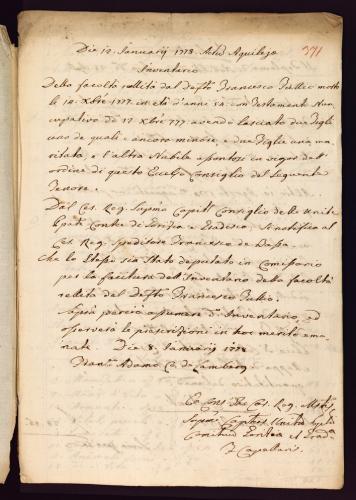 371
Die 12. Januarij 1778. Actu Aquileja
Inventario
Della facoltà relitta dal Defto Francesco morto
le 10. Xbre 1777. in età d'anni 50. con Testamento Nun-
cupativo de 17 Xbre 777. avendo lasciato due Figli
uno de quali ancora minore, e due Figlie una ma-
ritata, e l'altra Nubile apontosi in vigor dell'
ordine di questo Eccelso Consiglio del seguente
Tenore.
Dal Ces. Reg. Supmo Capit. Consiglio delle Unite
Contee di Gorizia e Gradisca, Si notifica al
Ces. Reg. Speditore Francesco de
Che lo stesso sia stato deputato in Comissario
per la facitura dell'Inventario della facoltà
relitta del Defto Francesco
Saprà perciò assumere d'Inventario, ed
osservare le prescrizioni in hoc merito ema-
nate. Die 8. Januarij 1778
Adamo C. de Lamberg
Ex Cons. Ces. Reg.
Supmi Captus Unitor
Comituu Goritiae et Grad.